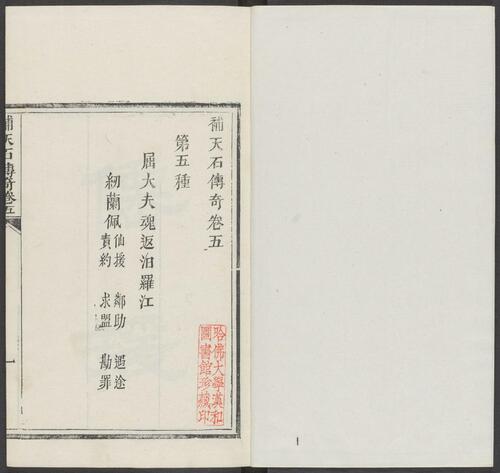 補天石傳奇卷五
第五種
屈大夫魂返汨羅江
紉蘭佩
仙援 鄰助 遇途
責約 求盟 勘罪
哈佛大學漢和
圖書館珍藏印
補天石傳奇卷五
一